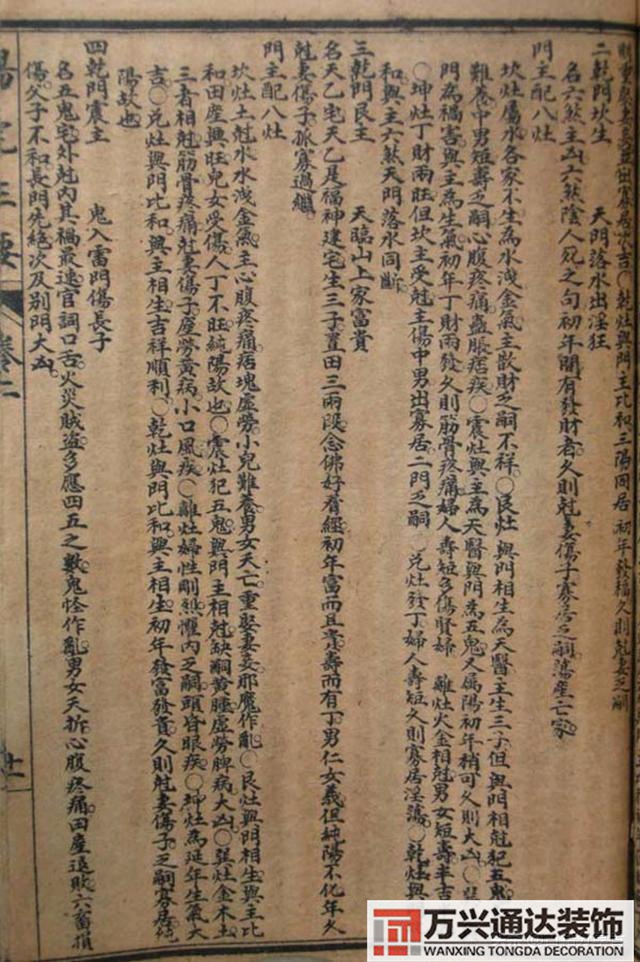 二乾門坎主 天門落水出淫狂
名六煞主凶六煞陰人死之句初年間有發財者久則尅妻傷子寡居乏嗣蕩產亡家
門主配八灶
坎灶屬水各家不生為水洩金氣主散財乏嗣不祥〇艮灶與門相生為天醫主生三子但與門相尅犯五鬼
難養中男短壽乏嗣心腹疼痛蠱脹痞疾〇震灶與主為天醫與門為五鬼又屬陽初年稍可久則大凶〇
門為禍害與主為生氣初年丁財兩發久則筋骨疼痛婦人壽短多傷賢婦 離灶火金相尅男女短壽半吉
〇坤灶丁財兩旺但坎主受尅主傷中男出寡居二門乏嗣 兌灶發丁婦人壽短久則寡居淫蕩〇乾灶與
和與主六煞天門落水同斷
三乾門艮主 天臨山上家富貴
名天乙宅天乙是福神建宅生三子置田三兩段念佛好看經初年富而且貴壽而有丁男仁女義但純陽不化年久
尅妻傷子孤寡過繼
門主配八灶
坎灶土尅水水洩金氣主心腹疼痛痞塊虛勞小兒難養男女夭亡重娶妻妾邪魔作亂〇艮灶與門相生與主比
和田產興旺兒女受傷人丁不旺純陽故也〇震灶犯五鬼與門主相尅缺嗣黃腫虛勞脾病大凶〇巽灶金木土
三者相尅筋骨疼痛尅妻傷子產勞黃病小口風疾〇離灶婦性剛烈懼內乏嗣頭昏眼疾〇坤灶為延年生氣大
吉〇兌灶與門比和與主相生吉祥順利〇乾灶與門比和與主相生初年發富發貴久則尅妻傷子乏嗣寡居純
陽故也
四乾門震主 鬼入雷門傷長子
名五鬼宅外尅內其禍最速官詞口舌火災賊盜多應四五之數鬼怪作亂男女夭折心腹疼痛田產退敗六畜損
傷父子不和長門先絕次及別門大凶
卷二
万兴通达装饰
WANXING TONGDA DECORATION